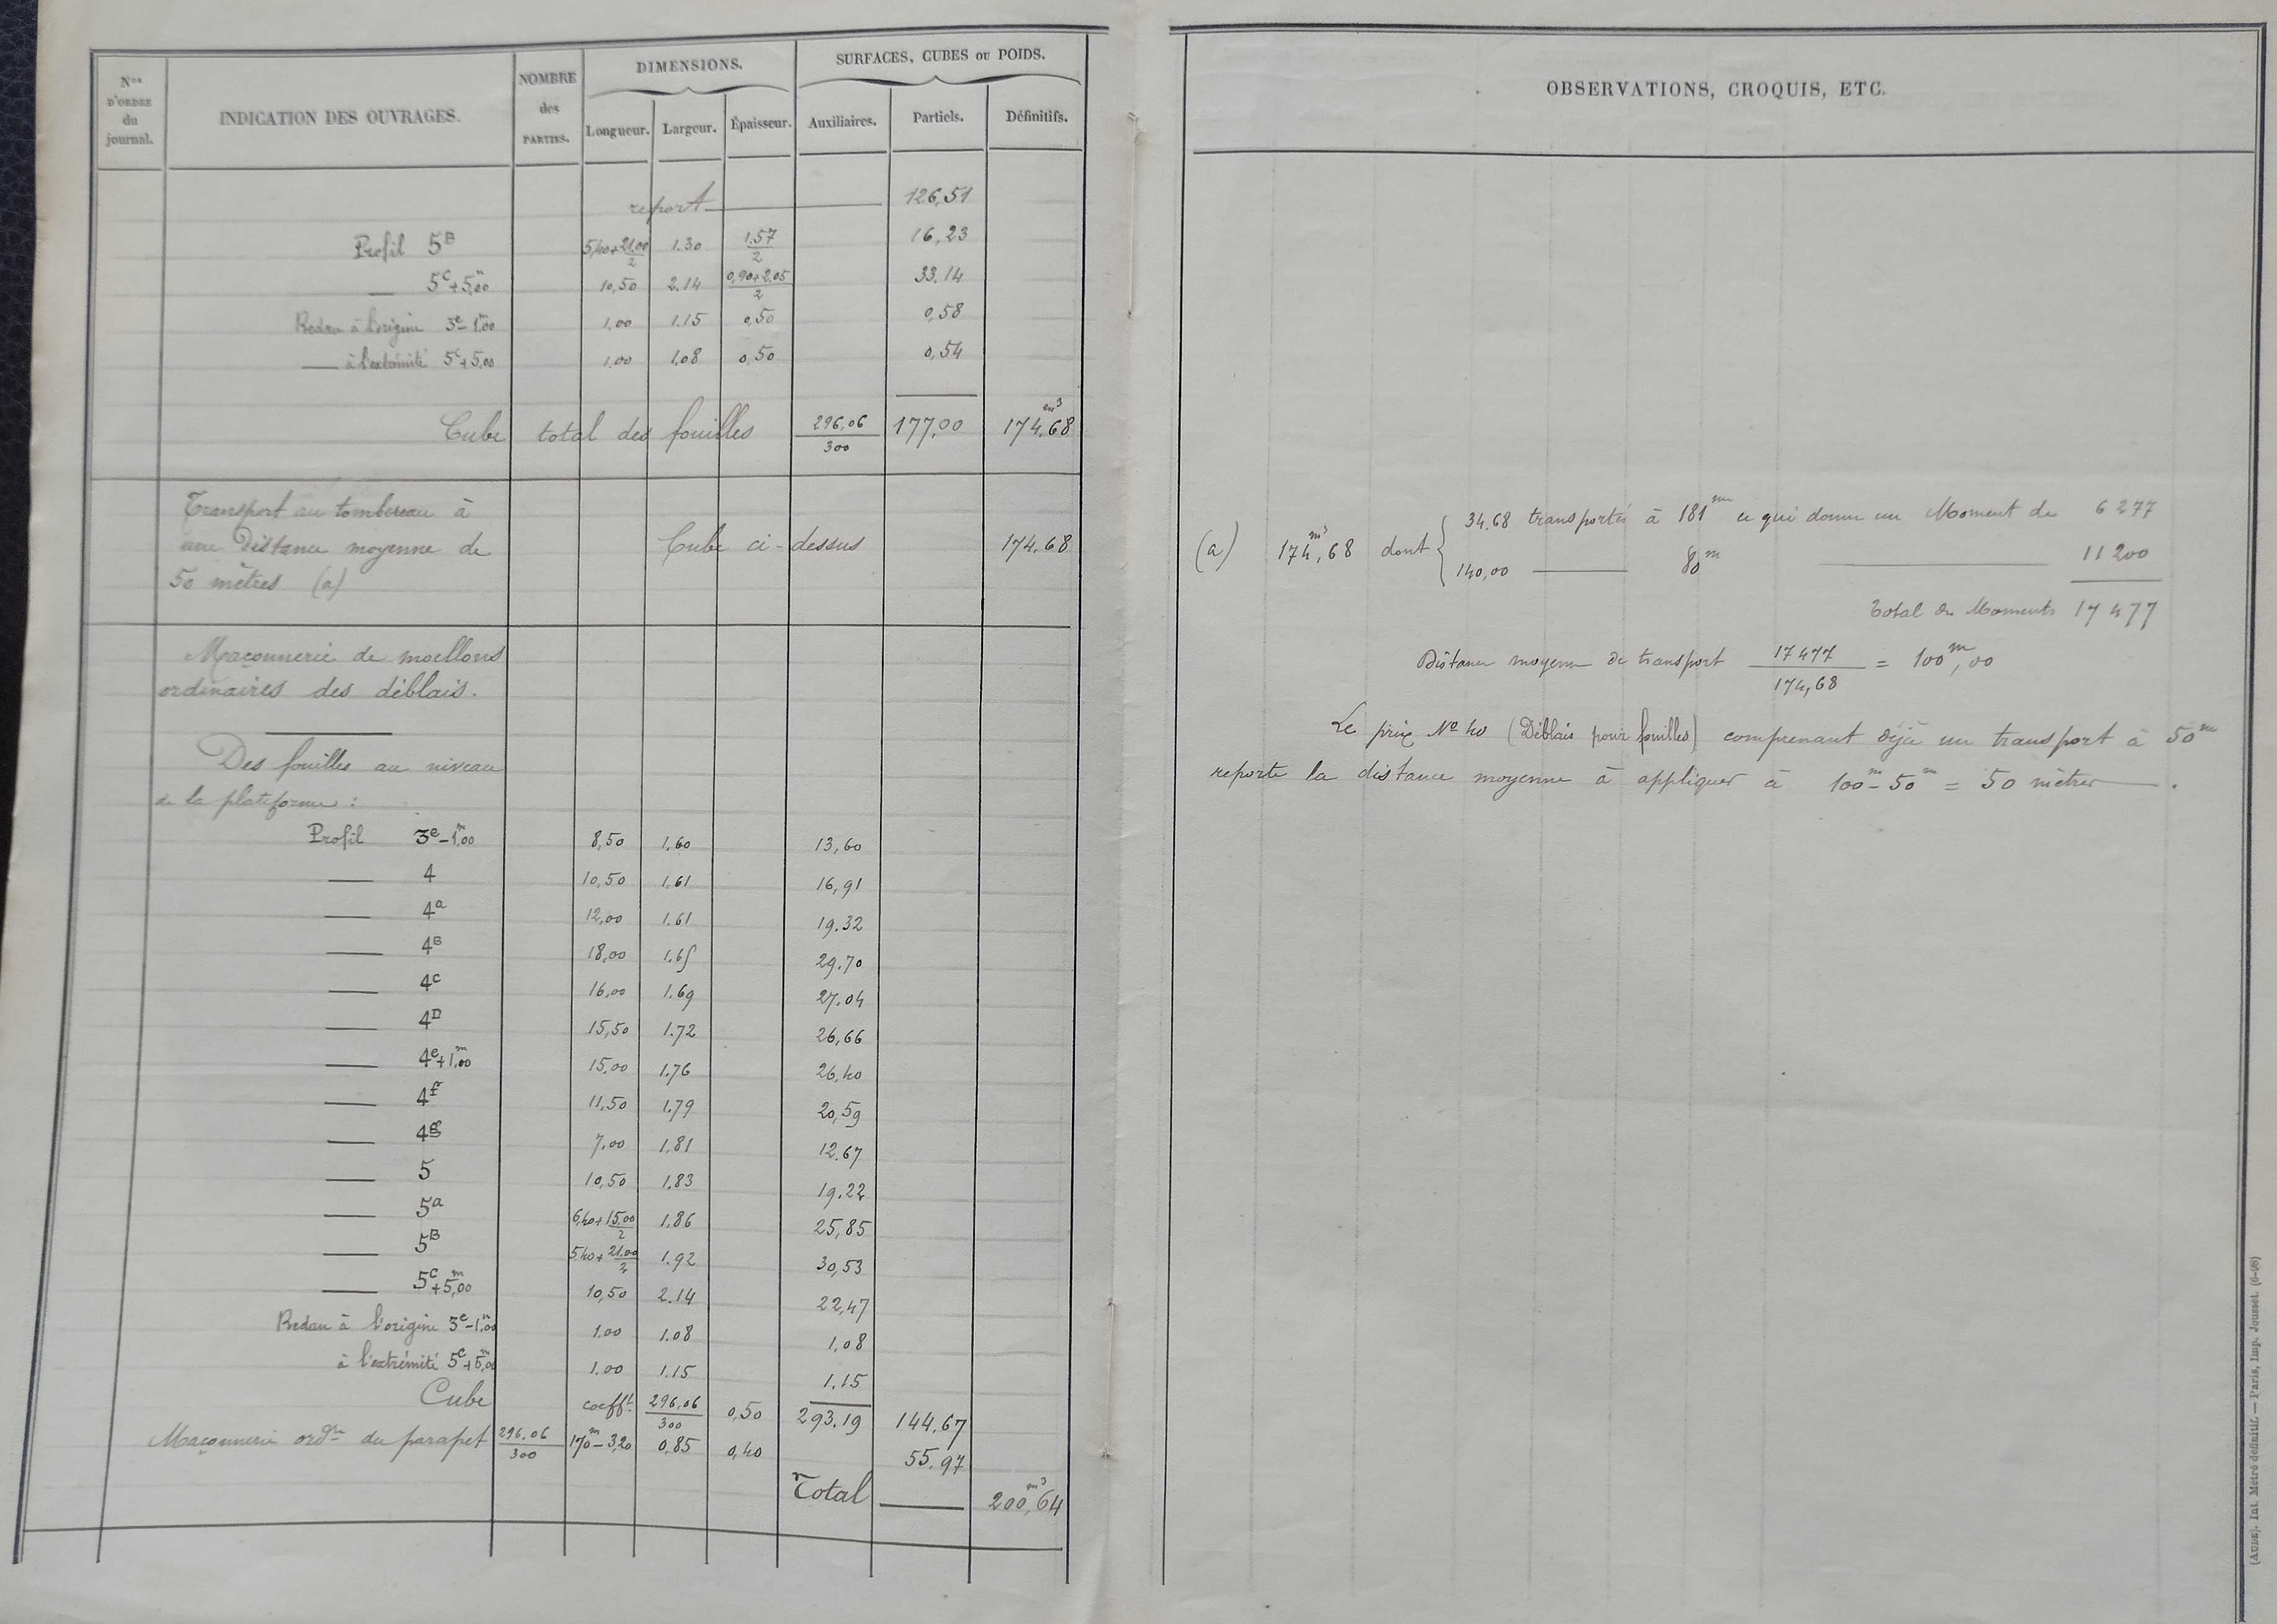 Nos D'ORDRE du journal. | INDICATION DES OUVRAGES. | NOMBRE des PARTIES. | DIMENSIONS. | SURFACES, CUBES ou POIDS.
Longueur. | Largeur. | Épaisseur. | Auxiliaires. | Partiels. | Définitifs.
report — 126,51
Profil 5B | 5,40+21,00/2 | 1.30 | 1.57/2 | 16,23
— 5C+5m,00 | 10,50 | 2.14 | 0,90+2,05/2 | 33.14
Redan à l'origine 3e-1m,00 | 1,00 | 1.15 | 0,50 | 0,58
— à l'extrémité 5C+5,00 | 1,00 | 1,08 | 0,50 | 0,54
Cube total des fouilles | 296,06/300 | 177,00 | 174,68 m3
Transport au tombereau à
une Distance moyenne de | Cube ci-dessus | 174,68
50 mètres (a)
Maçonnerie de moellons
ordinaires des déblais.
Des fouilles au niveau
de la plateforme :
Profil 3e-1m,00 | 8,50 | 1.60 | 13,60
— 4 | 10,50 | 1.61 | 16,91
— 4a | 12,00 | 1.61 | 19.32
— 4B | 18,00 | 1.65 | 29.70
— 4C | 16,00 | 1.69 | 27.04
— 4D | 15,50 | 1.72 | 26,66
— 4e+1m,00 | 15,00 | 1.76 | 26,40
— 4f | 11,50 | 1.79 | 20,59
— 4g | 7,00 | 1,81 | 12.67
— 5 | 10,50 | 1,83 | 19.22
— 5a | 6,40+15,00/2 | 1,86 | 25,85
— 5B | 5,40+21,00/2 | 1.92 | 30,53
— 5C+5m,00 | 10,50 | 2.14 | 22,47
Redan à l'origine 3e-1m,00 | 1.00 | 1.08 | 1,08
à l'extrémité 5C+5m,00 | 1.00 | 1.15 | 1.15
Cube | coefft | 296,06/300 | 0,50 | 293.19 | 144,67
Maçonnerie ordre du parapet | 296,06/300 | 170m-3,20 | 0,85 | 0,40 | 55.97
Total — 200,64 m3
OBSERVATIONS, CROQUIS, ETC.
(a) 174,68 m3 dont { 34.68 transportés à 181m ce qui donne un Moment de 6 277
140,00 — 80m — 11 200
Total des Moments 17 477
Distance moyenne de transport 17 477/174,68 = 100m,00
Le prix No 40 (Déblais pour fouilles) comprenant déjà un transport à 50m
reporte la distance moyenne à appliquer à 100m-50m = 50 mètres — .
(AUDE). Int. Métré définitif. — Paris, Imp. Jousset. (6-98)